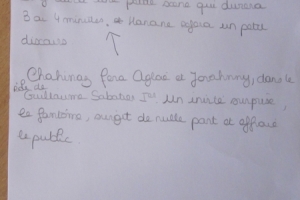 petite scène qui durera
3 ou 4 minutes. et Hanane fera un petit
discours
Chahinaz fera Aglaé et Jonathnny, dans le
rôle de
Guillaume Sabatier. Un invité surprise,
le fantôme, surgit de nulle part et effraie
le public.